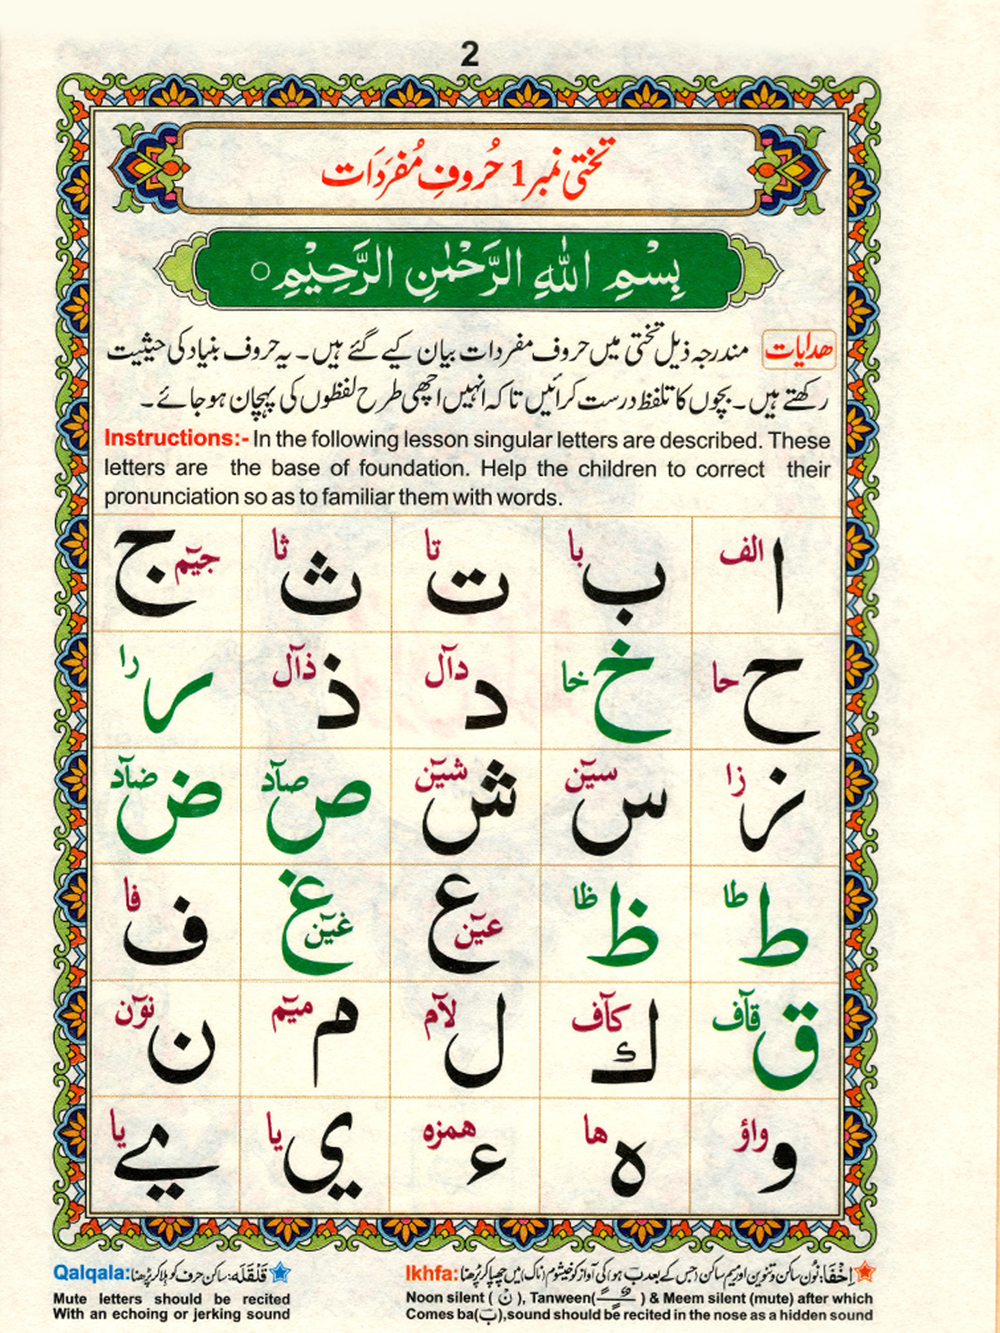 2
تختی نمبر 1 حُروفِ مُفرَدَات
بِسْمِ اللّٰهِ الرَّحْمٰنِ الرَّحِيْمِ ○
ھدایات مندرجہ ذیل تختی میں حروف مفردات بیان کیے گئے ہیں۔ یہ حروف بنیاد کی حیثیت
رکھتے ہیں۔ بچوں کا تلفظ درست کرائیں تاکہ انہیں اچھی طرح لفظوں کی پہچان ہوجائے۔
Instructions:- In the following lesson singular letters are described. These
letters are the base of foundation. Help the children to correct their
pronunciation so as to familiar them with words.
ا الف ب با ت تا ث ثا ج جیٓم
ح حا خ خا د دآل ذ ذآل ر را
ز زا س سیٓن ش شیٓن ص صآد ض ضآد
ط طا ظ ظا ع عیٓن غ غیٓن ف فا
ق قآف ك کآف ل لآم م میٓم ن نوٓن
و واؤ ہ ھا ء ھمزہ ی یا ے یا
Qalqala: قَلْقَلَه: ساکن حرف کو ہلا کر پڑھنا
Mute letters should be recited
With an echoing or jerking sound
Ikhfa: اِخْفَا: نُون ساکن و تنوین اور میم ساکن (جس کے بعد ب ہو) کی آواز کو خیشوم (ناک) میں چھپا کر پڑھنا
Noon silent ( نْ ), Tanween( ـًـٍـٌ ) & Meem silent (mute) after which
Comes ba(ب),sound should be recited in the nose as a hidden sound